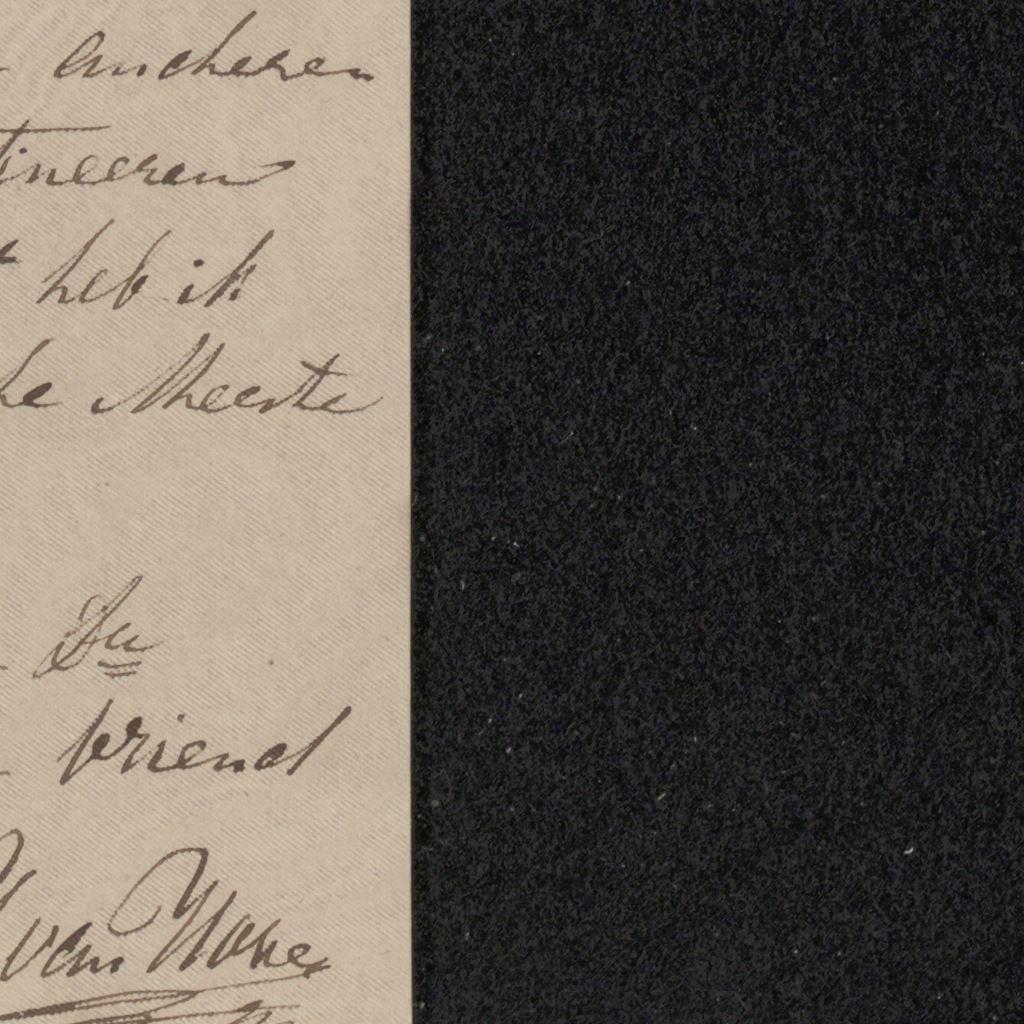 ancheren
tineeren
heb ik
he Meeste
Du
vriend
van Hove